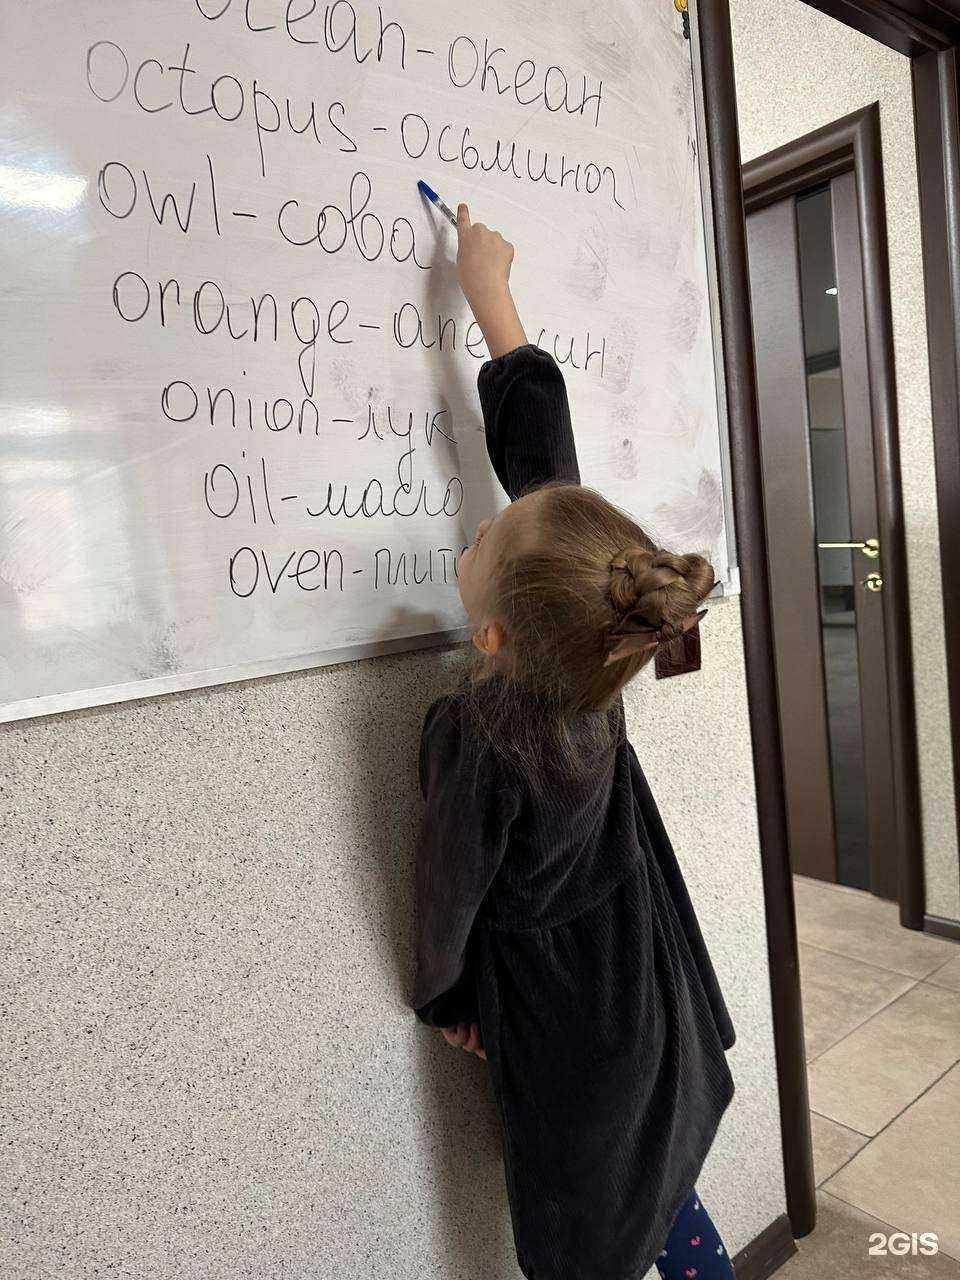 ocean - океан
octopus - осьминог
owl - сова
orange -
onion - лук
oil - масло
oven -
2GIS